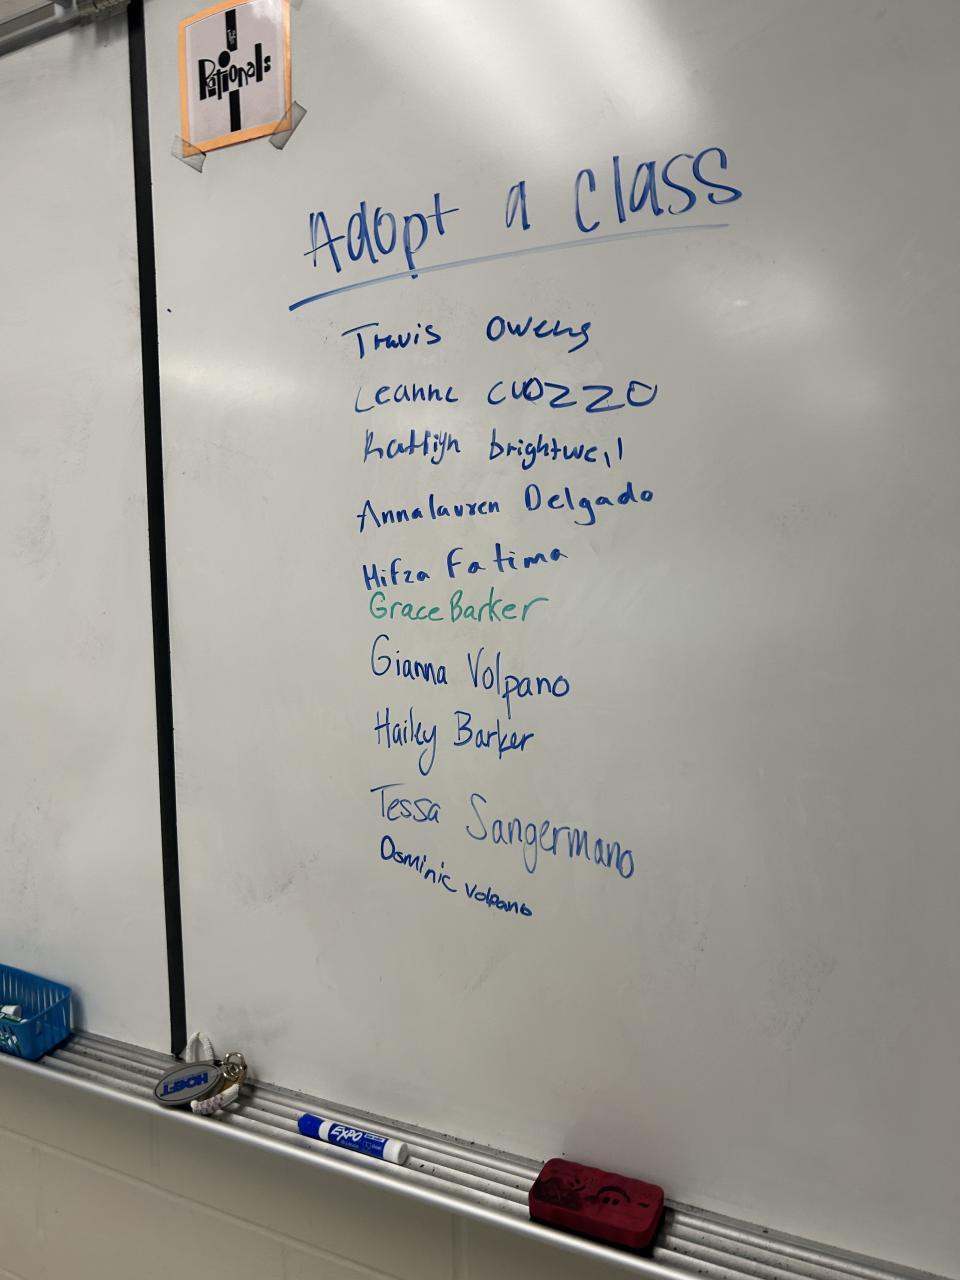 The
Rationals
Adopt a class
Travis Owens
Leanne CUOZZO
Katlijn brightwell
Annalauren Delgado
Hifza Fatima
Grace Barker
Gianna Volpano
Hailey Barker
Tessa Sangermano
Dominic Volpano
HOEFT
EXPO